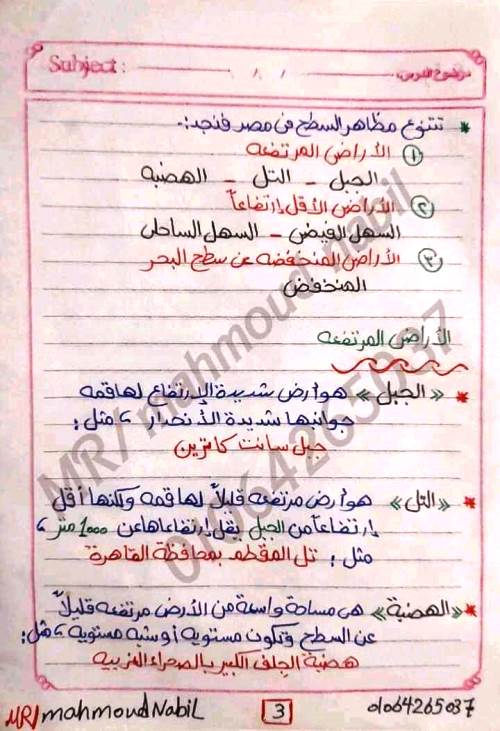 Subject: / / موضوع الدرس:
* تتنوع مظاهر السطح فى مصر فنجد:-
① الأراضى المرتفعه
الجبل - التل - الهضبه
② الأراضى الأقل إرتفاعاً
السهل الفيضى - السهل الساحلى
③ الأراضى المنخفضه عن سطح البحر
المنخفض
الأراضى المرتفعه
* «الجبل» هو أرض شديدة الإرتفاع لها قمه
جوانبها شديدة الأنحدار، مثل:
جبل سانت كاترين
* «التل» هو أرض مرتفعه قليلاً لها قمه ولكنها أقل
إرتفاعاً من الجبل يقل إرتفاعها عن 1000 متر،
مثل: تل المقطم بمحافظة القاهرة
* «الهضبة» هى مساحة واسعة من الأرض مرتفعه قليلاً
عن السطح وتكون مستويه أو شبه مستويه، مثل:
هضبة الجلف الكبير بالصحراء الغربيه
MR/mahmoud Nabil 3 01064265037
MR/ mahmoud nabil
01064265037